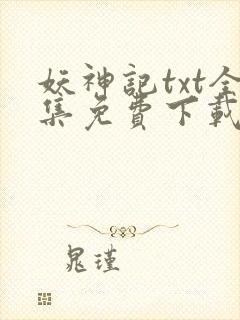 妖神記txt全
集免費下載
晁瑾